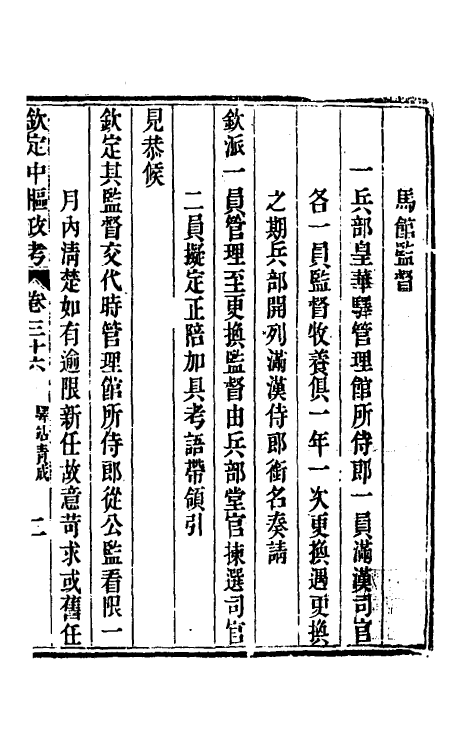 馬館監督
一兵部皇華驛管理館所侍郎一員滿漢司官
各一員監督牧養俱一年一次更換遇更換
之期兵部開列滿漢侍郎銜名奏請
欽派一員管理至更換監督由兵部堂官揀選司官
二員擬定正陪加具考語帶領引
見恭候
欽定其監督交代時管理館所侍郎從公監看限一
月內清楚如有逾限新任故意苛求或舊任
欽定中樞政考 卷三十六 驛站青成 二